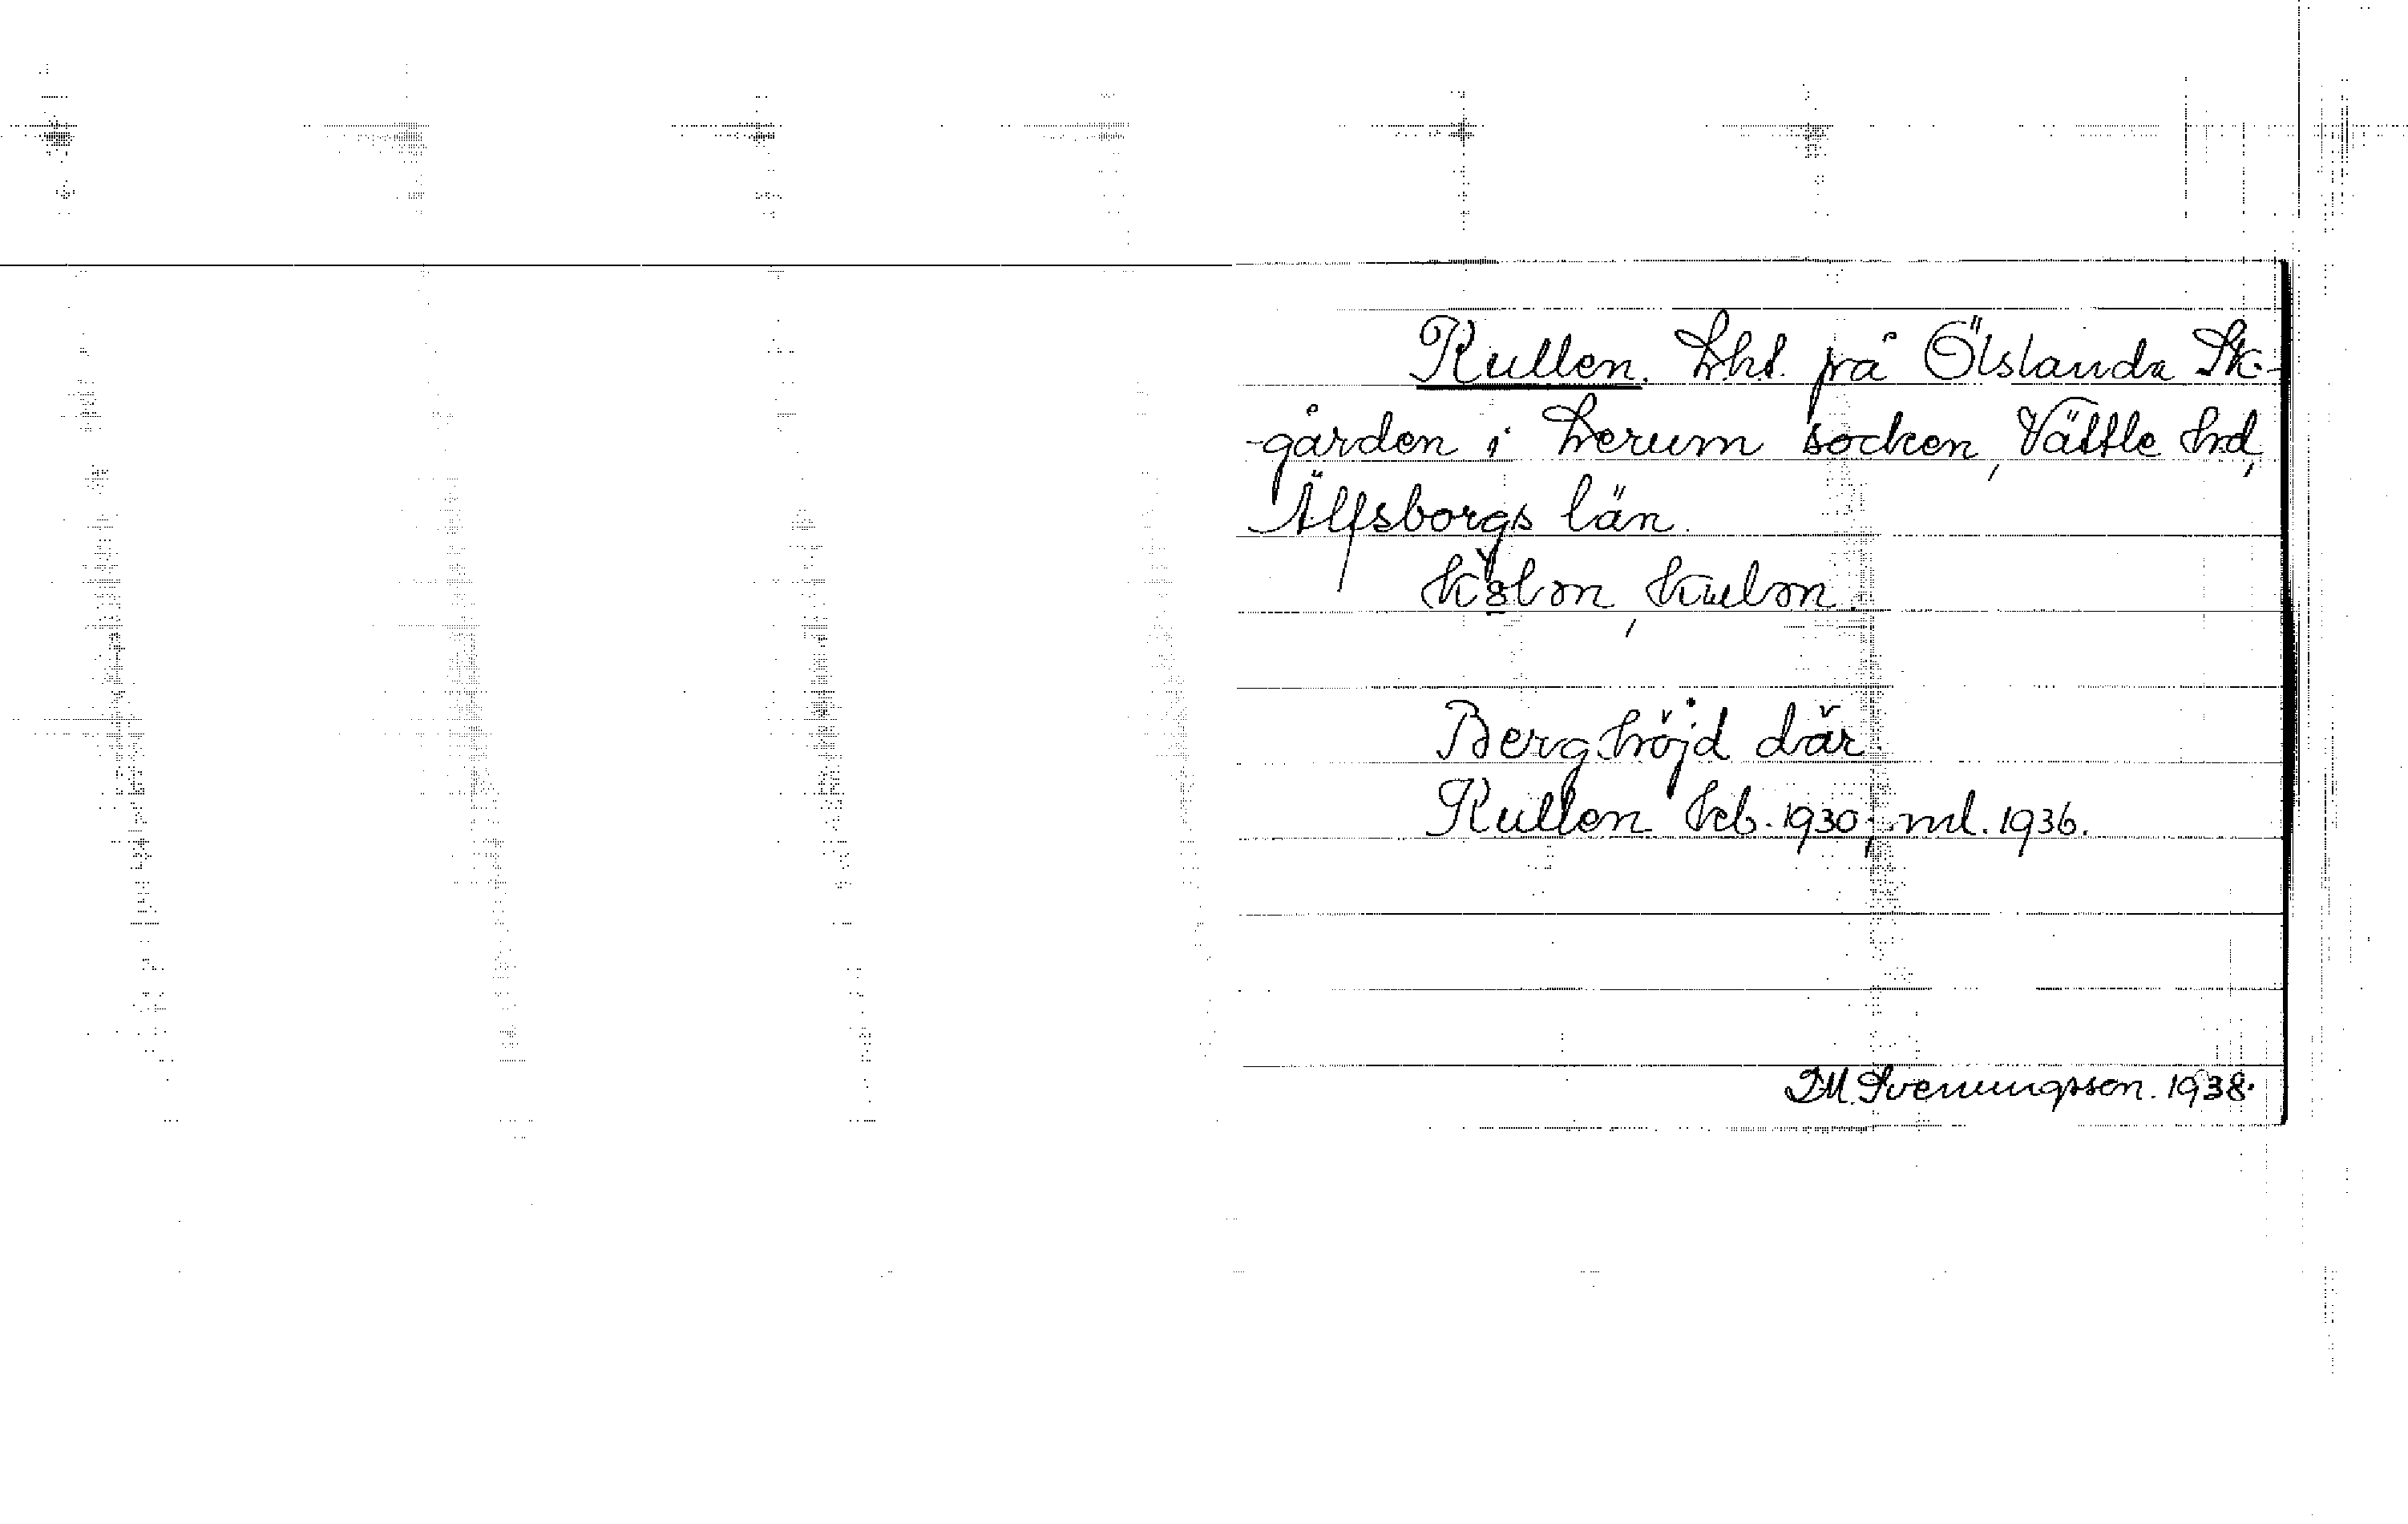 Kullen. Lht. på Ölslanda Sk.-
-gården i Lerum socken, Vättle hd,
Älfsborgs län.
kulon.
Berghöjd där.
Kullen Jeb. 1930; ml. 1936.
I.M. Svenungsson. 1938.